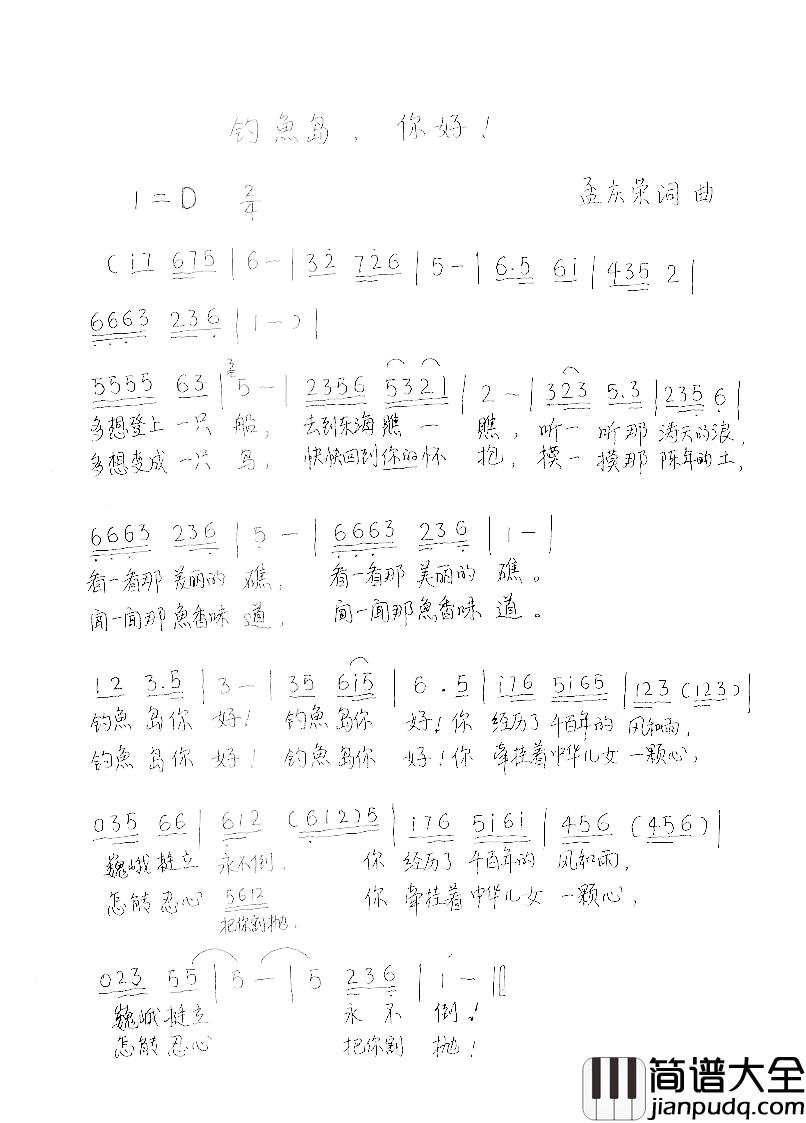 钓魚岛，你好！
1=D 2/4
孟庆荣词曲
(i7 675 | 6 - | 32 726 | 5 - | 6.5 6i | 435 2 |
6663 236 | 1 - ) |
5555 63 | 5 - | 2356 5321 | 2 - | 323 5.3 | 235 6 |
多想登上一只船，去到东海瞧一瞧，听一听那涛天的浪，
多想变成一只鸟，快快回到你的怀抱，摸一摸那陈年的土，
6663 236 | 5 - | 6663 236 | 1 - |
看一看那美丽的礁，看一看那美丽的礁。
闻一闻那魚香味道，闻一闻那魚香味道。
12 3.5 | 3 - | 35 6i5 | 6 . 5 | i76 5i65 | 123 (123) |
钓魚岛你好！钓魚岛你好！你经历了千百年的风和雨，
钓魚岛你好！钓魚岛你好！你牵挂着中华儿女一颗心，
035 66 | 612 (612)5 | i76 5i6i | 456 (456) |
巍峨挺立永不倒．你经历了千百年的风和雨，
怎能忍心 5612 你牵挂着中华儿女一颗心，
把你割抛．
023 55 | 5 - | 5 236 | i - ||
巍峨挺立永不倒！
怎能忍心把你割抛！
简谱大全
jianpudq.com